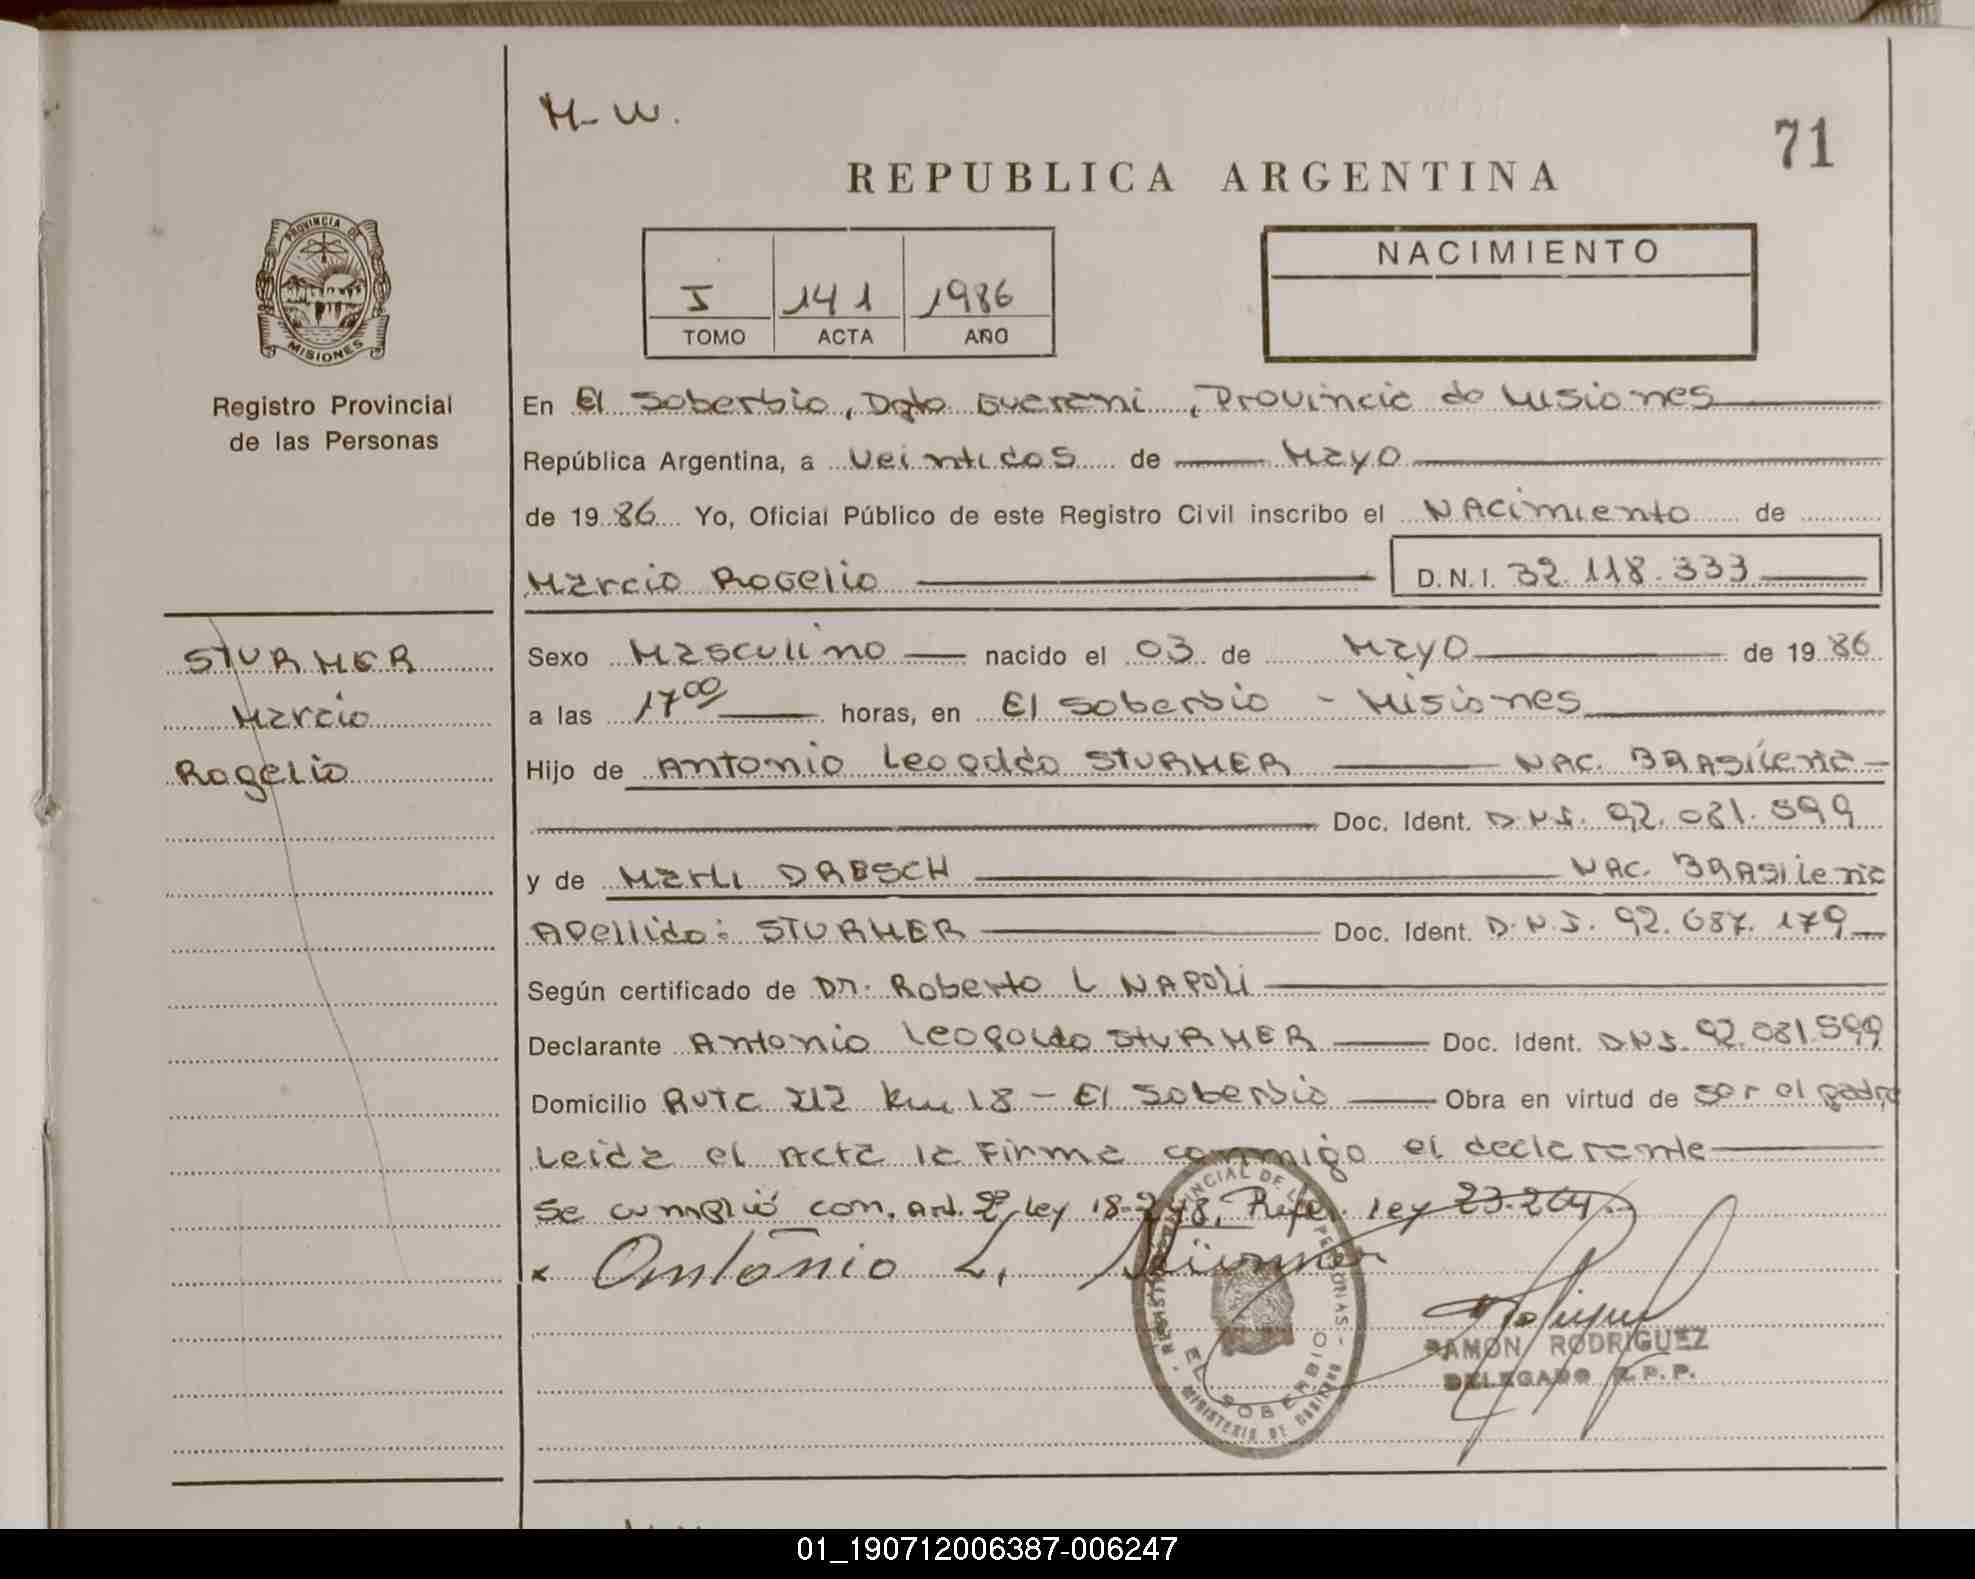 M-W.
71
REPUBLICA ARGENTINA
PROVINCIA DE
MISIONES
Registro Provincial
de las Personas
I 141 1986
TOMO ACTA AÑO
NACIMIENTO
En El Soberbio, Dpto Guarani, Provincia de Misiones
República Argentina, a veintidos de Mayo
de 1986 Yo, Oficial Público de este Registro Civil inscribo el Nacimiento de
Marcio Rogelio D.N.I. 32.118.333
STURMER
Marcio
Rogelio
Sexo Masculino nacido el 03 de Mayo de 1986
a las 17⁰⁰ horas, en El Soberbio - Misiones
Hijo de Antonio Leopoldo STURMER NAC. BRASileña
Doc. Ident. D.N.I. 92.081.599
y de Marli DRESCH NAC. BRASileña
Apellido: STURMER Doc. Ident. D.N.I. 92.687.179
Según certificado de Dr. Roberto L NAPOLI
Declarante Antonio Leopoldo STURMER Doc. Ident. D.N.I. 92.081.599
Domicilio Ruta 212 km 18 - El Soberbio Obra en virtud de ser el padre
Leida el Acta la Firma conmigo el declarante
Se cumplió con. Art. 2º Ley 18-248, Ley 23.264.
x Antônio L. Stürmer
RAMON RODRIGUEZ
DELEGADO R.P.P.
EL SOBERBIO
01_190712006387-006247